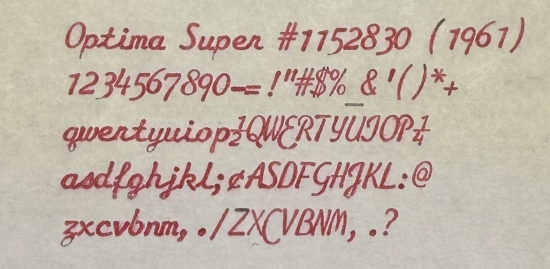 Optima Super #1152830 (1961)
1234567890-= !"#$%_&'()*+
qwertyuiop½QWERTYUIOP¼
asdfghjkl;¢ASDFGHJKL:@
zxcvbnm, ./ZXCVBNM, .?